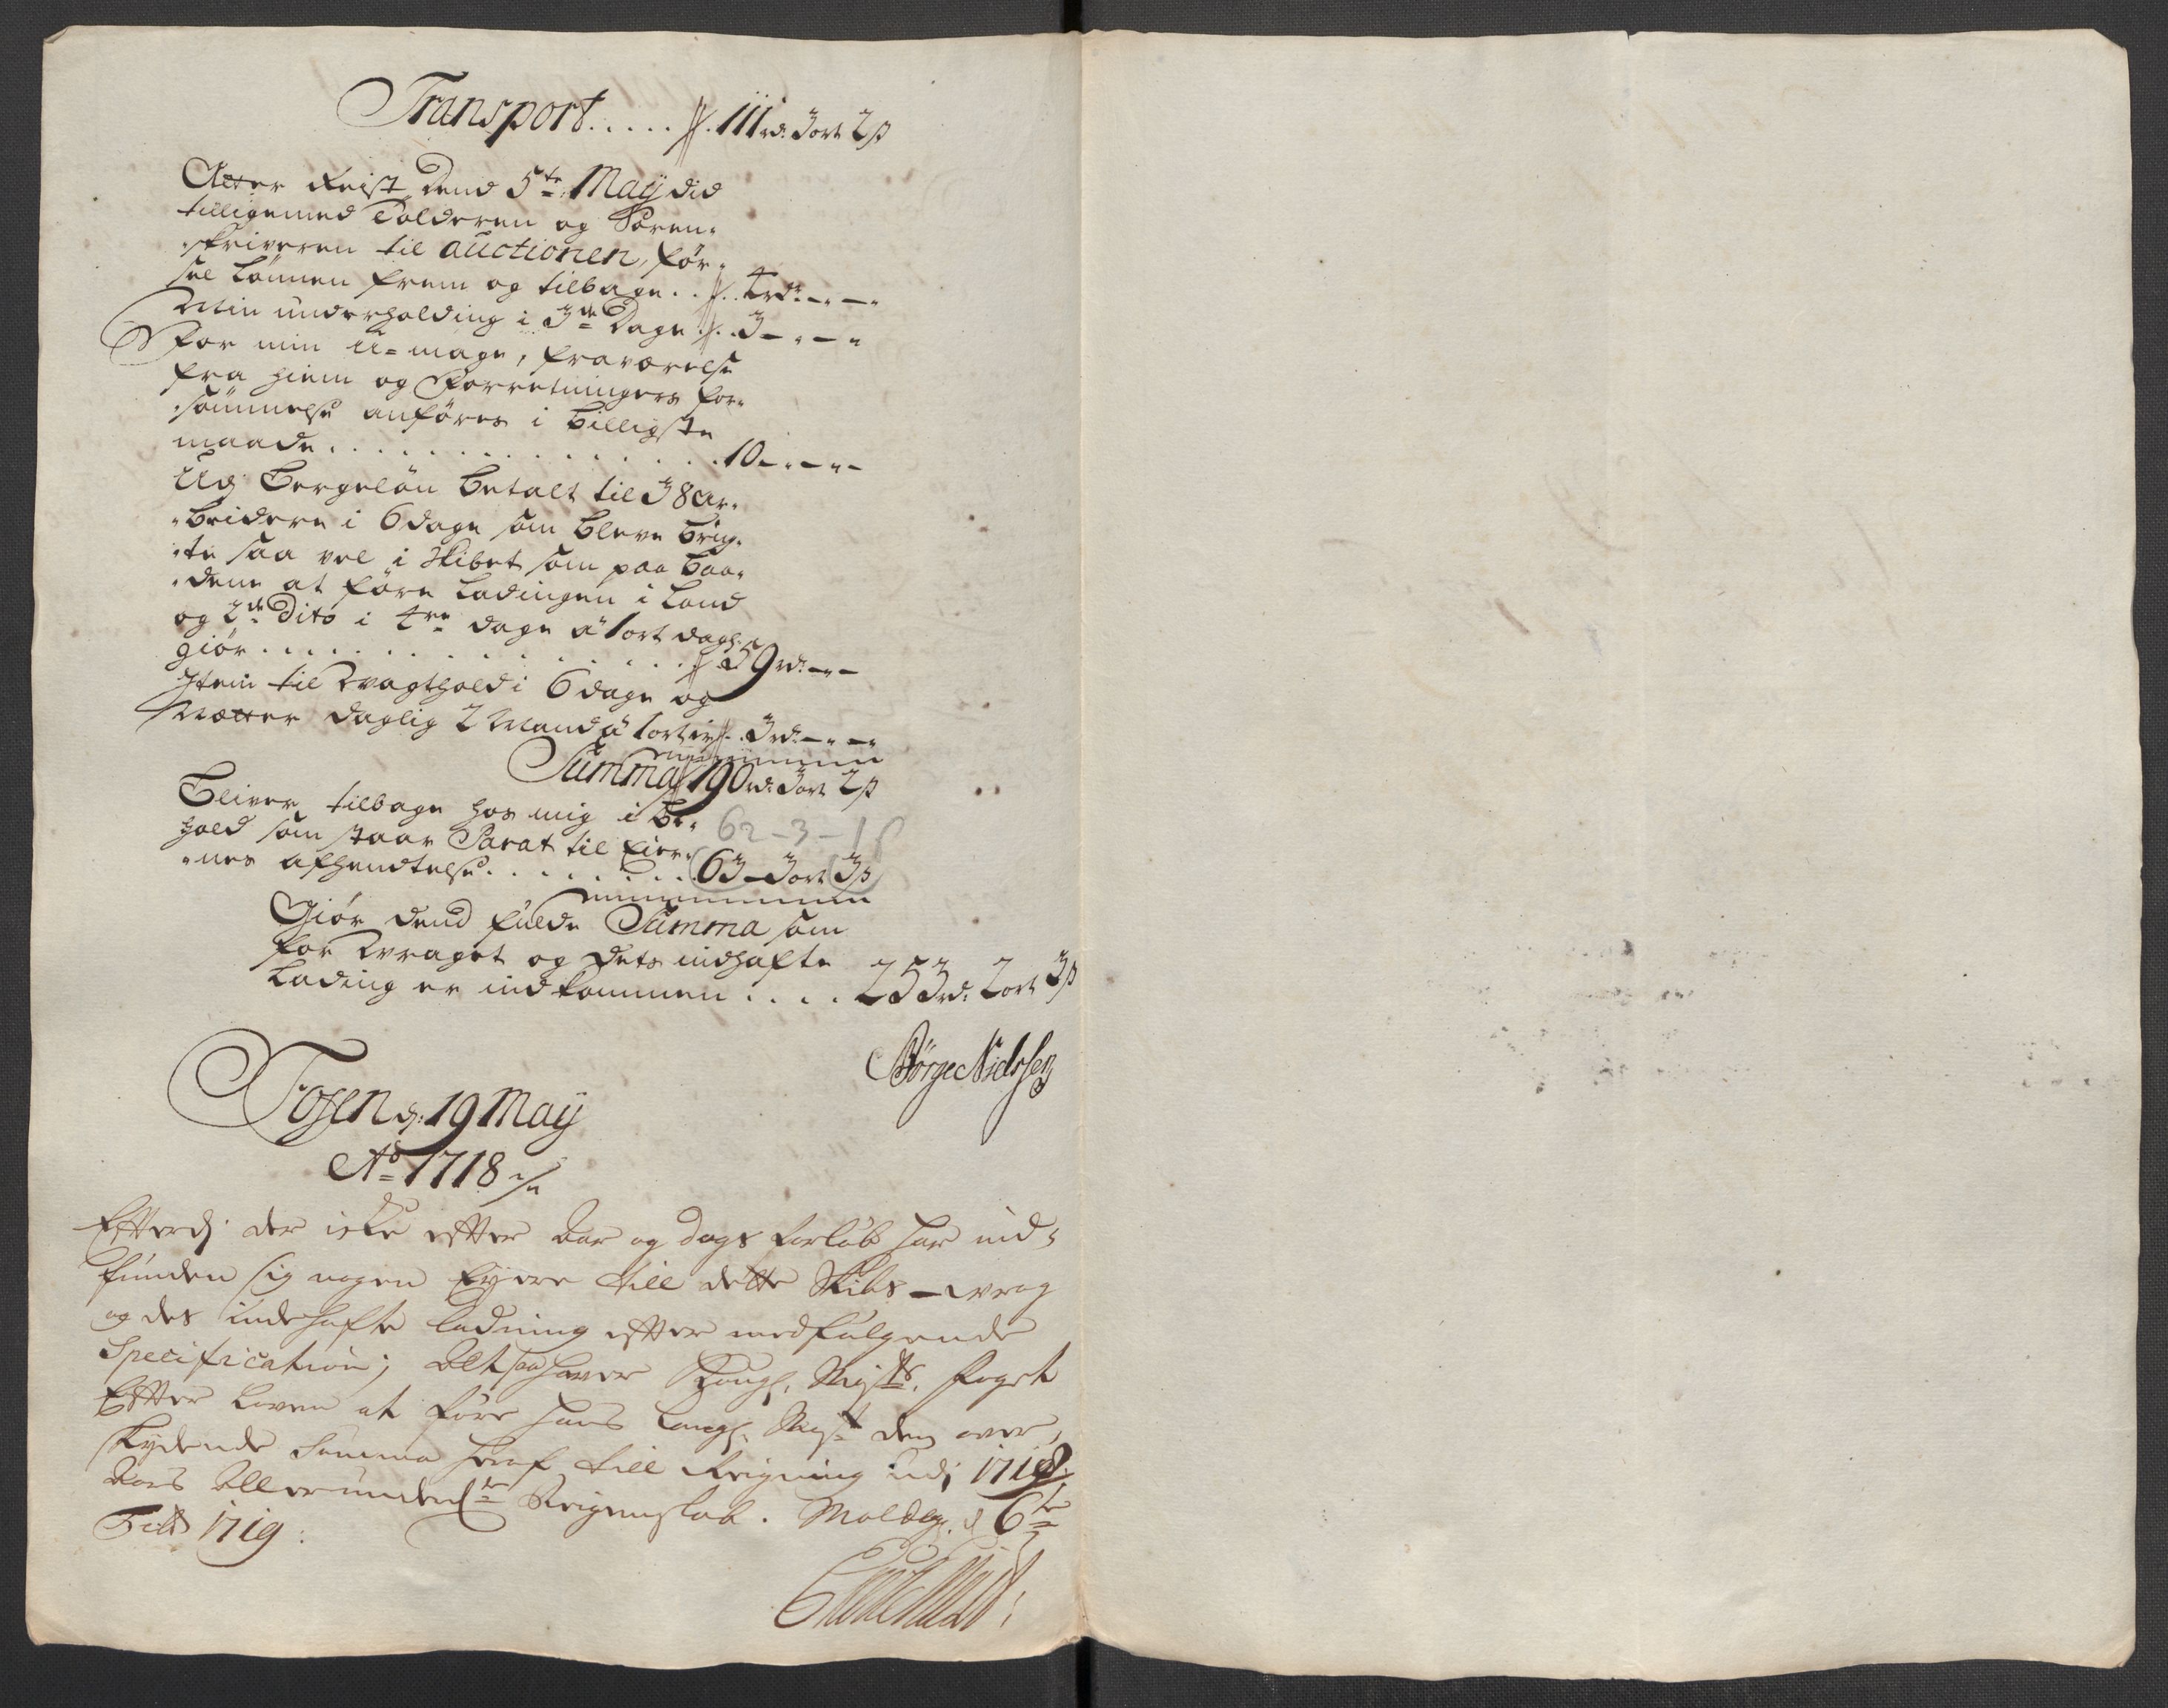 Transport. . . . . 111 rd: 3 ort 2 ß
Atter Reist dend 5te Maÿ did
tilligemed Tolderen og Soren-
skriveren til auctionen, før-
sel lønnen frem og tilbage . . 4 rd: - " - "
Min underholding i 3de Dage . . 3 - " - "
For min U-mage, fraværelse
fra hiem og Forretningers for-
sømmelse anføres i billigste
maade . . . . . . . . . . 10 - " - " -
Udj Bergeløn betalt til 38 ar-
beidere i 6 dage som bleve brug-
te saa vel i Skibet som paa baa-
dene at føre Ladingen i Land
og 2de Dito i 4re dage a 1 ort dagl:
giør . . . . . . . . . . 59 rd: - " -
Item til Vagthold i 6 dage og
Nætter daglig 2 Mand a 1 ort er . 3 rd: - " - "
Summa 190 rd: 3 ort 2 ß
Bliver tilbage hos mig i be-
62 - 3 - 1 ß
hold som staar Parat til Eier-
nes afhendtelse . . . . . . . 63 - 3 ort 3 ß
Giør dend fulde Summa som
for Wraget og dets indhafte
Lading er indkommen . . . . 253 rd: 2 ort 3 ß
Børge Nielssen
Fosen d: 19 Maÿ
Ao 1718
Efterdj der icke efter Aar og Dags forløb har ind-
funden sig nogen Eyere till dette Skibs-wrag
og des indehafte ladning efter medfølgende
Specification; Altsaa haver Kongl. Mayts. Foget
Efter Loven at føre hans Kongl. Mayt den over-
skydende Summa heraf till Reigning udj 1718
Aars Allerunderdte Reigenskab. Molde d 6te
1719: